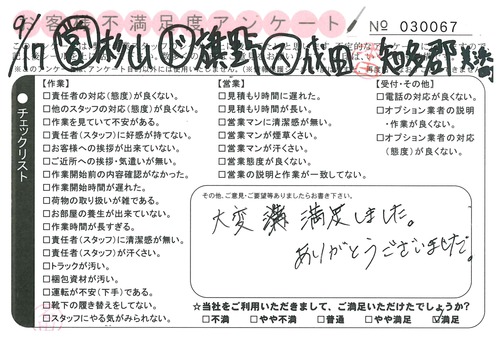 お客様不満足度アンケート
No 030067
9/17 営 杉山 ド 旗野 ア 成田 知多郡
チェックリスト
【作業】
□責任者の対応(態度)が良くない。
□他のスタッフの対応(態度)が良くない。
□作業を見ていて不安がある。
□責任者(スタッフ)に好感が持てない。
□お客様への挨拶が出来ていない。
□ご近所への挨拶・気遣いが無い。
□作業開始前の内容確認がなかった。
□作業開始時間が遅れた。
□荷物の取り扱いが雑である。
□お部屋の養生が出来ていない。
□作業時間が長すぎる。
□責任者(スタッフ)に清潔感が無い。
□責任者(スタッフ)が汗くさい。
□トラックが汚い。
□梱包資材が汚い。
□運転が不安(下手)である。
□靴下の履き替えをしてない。
□スタッフにやる気がみられない。
【営業】
□見積もり時間に遅れた。
□見積もり時間が長い。
□営業マンに清潔感が無い。
□営業マンが煙草くさい。
□営業マンが汗くさい。
□営業態度が良くない。
□営業の説明と作業が一致してない。
【受付・その他】
□電話の対応が良くない。
□オプション業者の説明・作業が良くない。
□オプション業者の対応(態度)が良くない。
その他、ご意見・ご要望等ありましたらお書き下さい。
大変 満足しました。
ありがとうございました。
☆当社をご利用いただきまして、ご満足いただけたでしょうか?
□不満 □やや不満 □普通 □やや満足 ☑満足